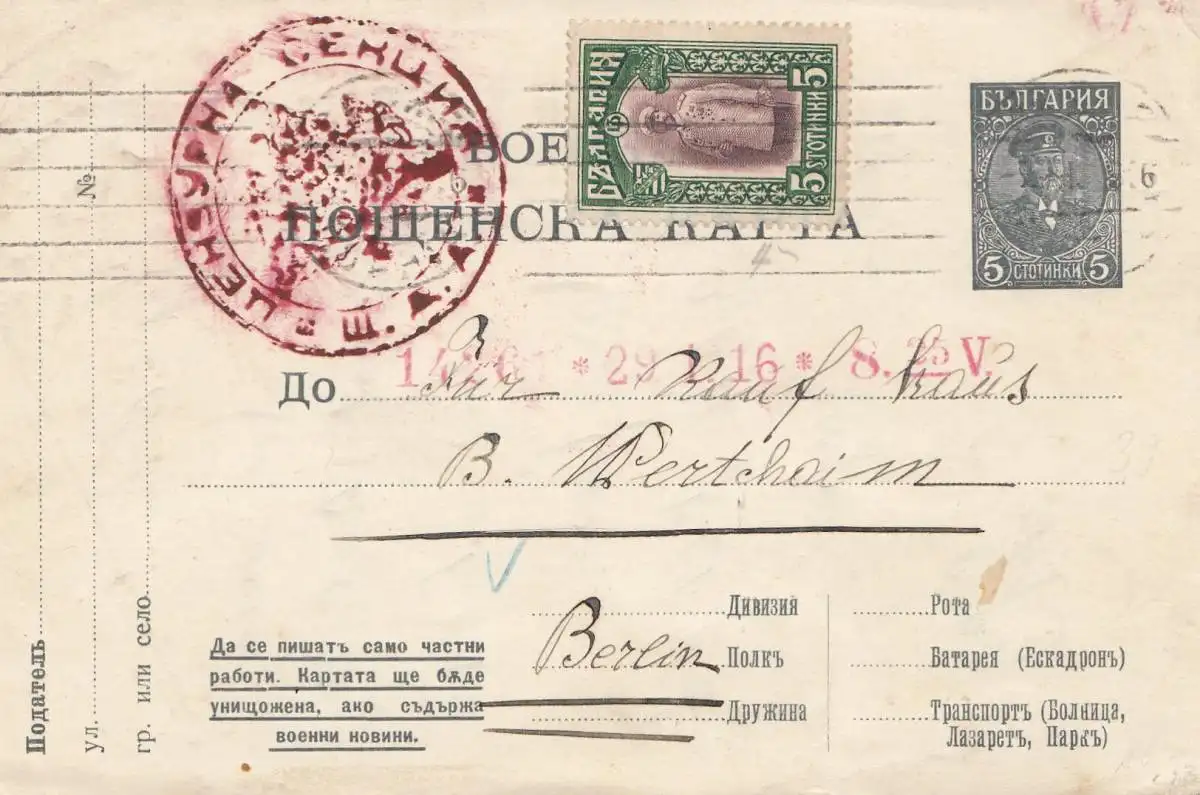 ЦЕНЗУРНА СЕКЦИЯ
Щ. Д. А.
БЪЛГАРИЯ
5 СТОТИНКИ 5
БЪЛГАРИЯ
5 СТОТИНКИ 5
ВОЕ
ПОЩЕНСКА КАРТА
* 29 16 * 8. 25 V.
До Für Kaufhaus
B. Wertchaim
Berlin
Дивизия
Полкъ
Дружина
Рота
Батарея (Ескадронъ)
Транспортъ (Болница,
Лазаретъ, Паркъ)
Да се пишатъ само частни
работи. Картата ще бѫде
унищожена, ако съдържа
военни новини.
Податель
ул. №
гр. или село